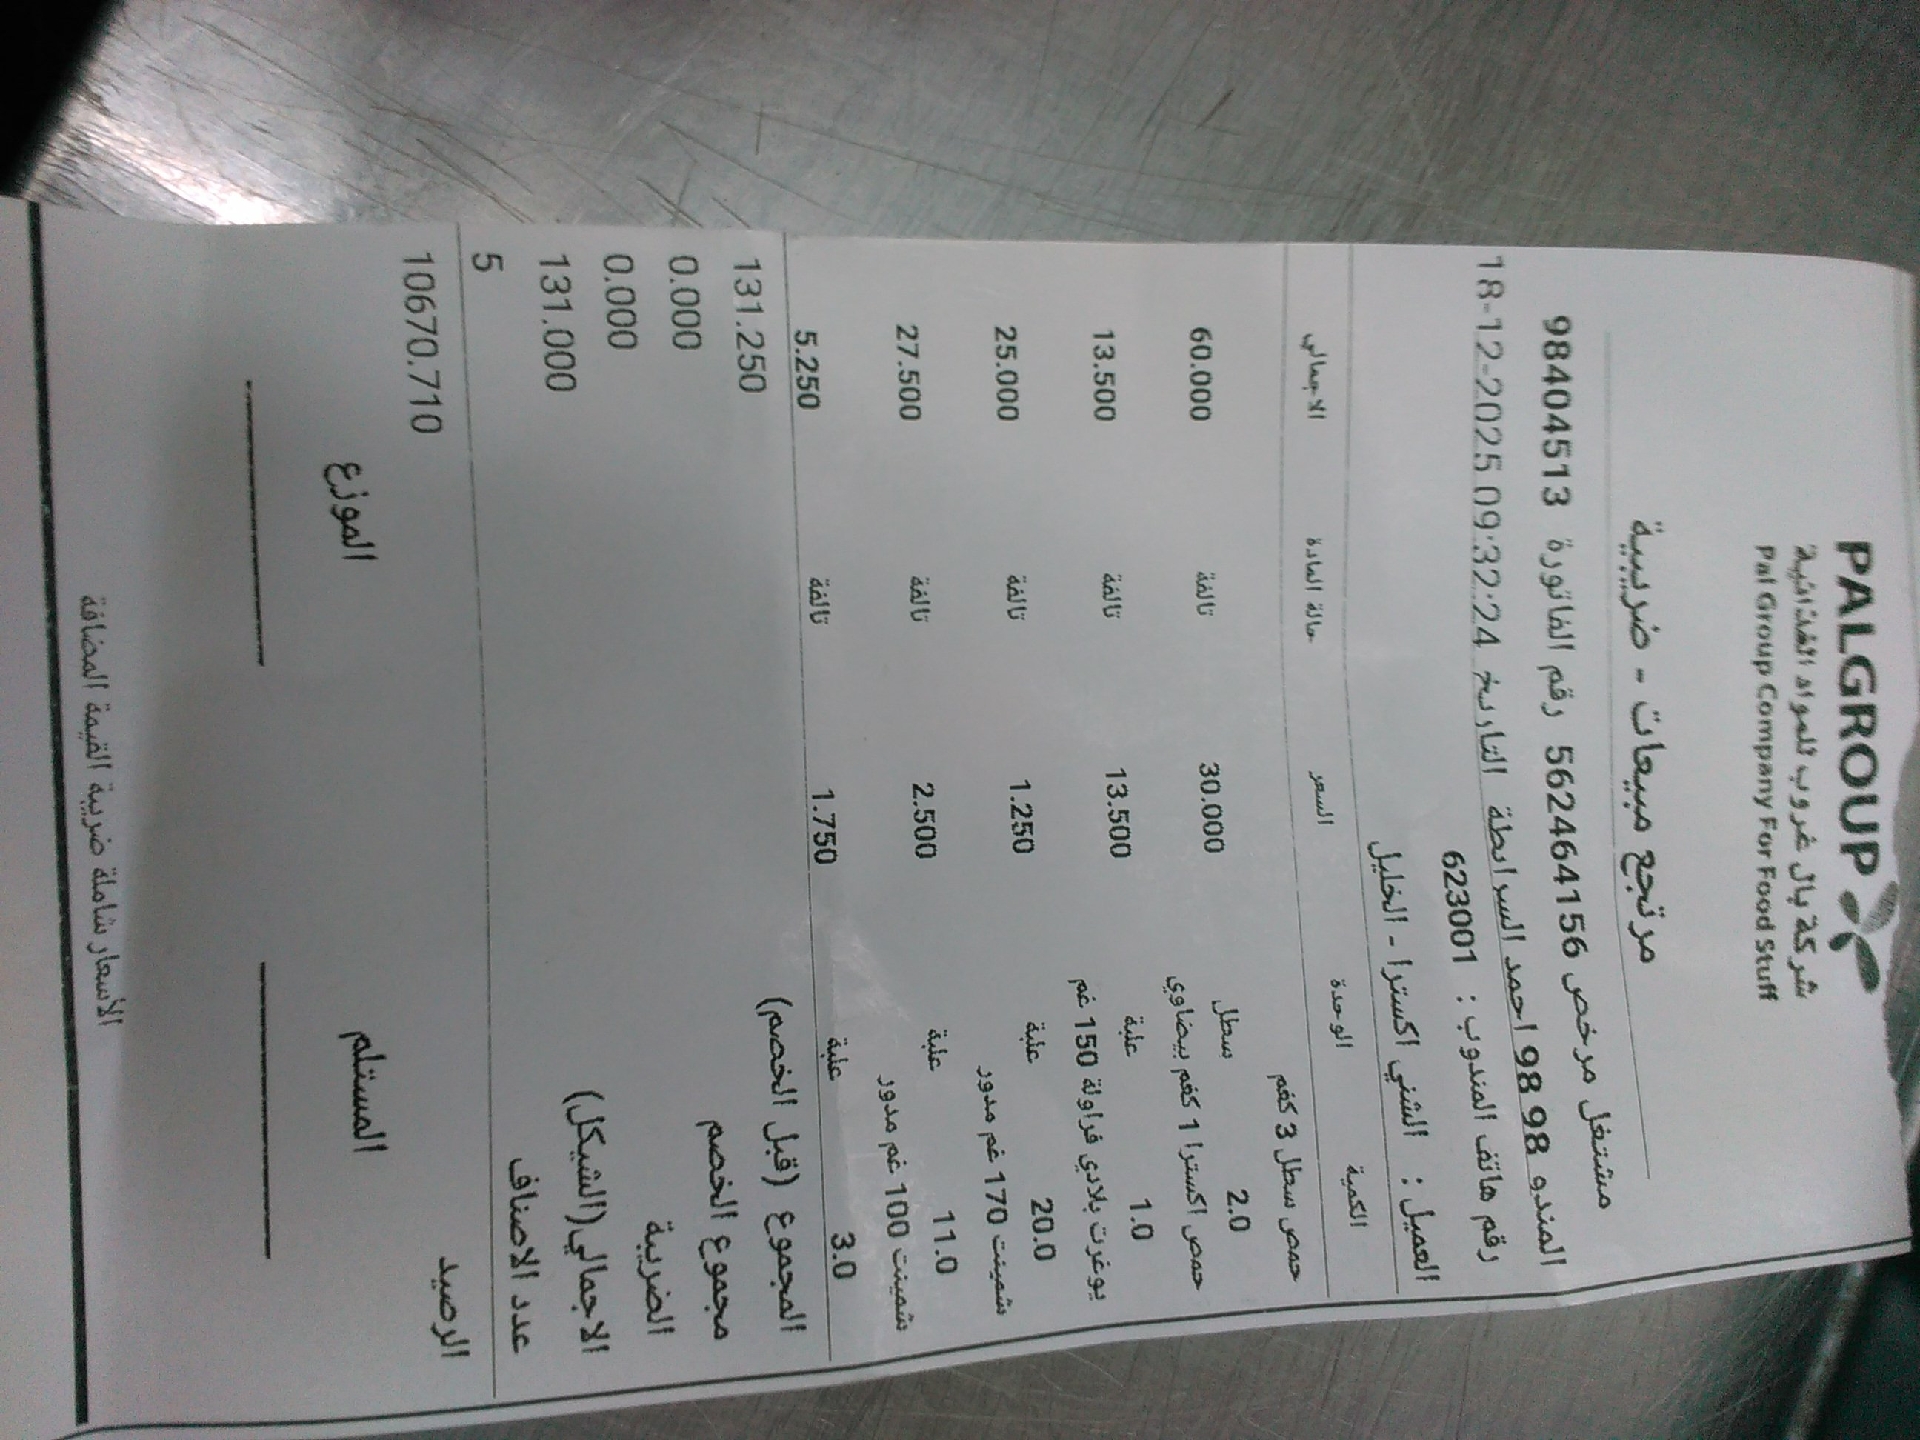 PALGROUP
شركة بال غروب للمواد الغذائية
Pal Group Company For Food Stuff
مرتجع مبيعات - ضريبية
مشتغل مرخص 562464156 رقم الفاتورة 98404513
المندو 98 98 احمد السرابطة التاريخ 18-12-2025 09:32:24
رقم هاتف المندوب : 623001
العميل : الشني اكسترا - الخليل
الكمية الوحدة السعر حالة المادة الاجمالي
حمص سطل 3 كغم
2.0 سطل 30.000 تالفة 60.000
حمص اكسترا 1 كغم بيضاوي
1.0 علبة 13.500 تالفة 13.500
يوغرت بلادي فراولة 150 غم
20.0 علبة 1.250 تالفة 25.000
شمينت 170 غم مدور
11.0 علبة 2.500 تالفة 27.500
شمينت 100 غم مدور
3.0 علبة 1.750 تالفة 5.250
المجموع (قبل الخصم) 131.250
مجموع الخصم 0.000
الضريبة 0.000
الاجمالي(الشيكل) 131.000
عدد الاصناف 5
الرصيد 10670.710
المستلم الموزع
الأسعار شاملة ضريبة القيمة المضافة